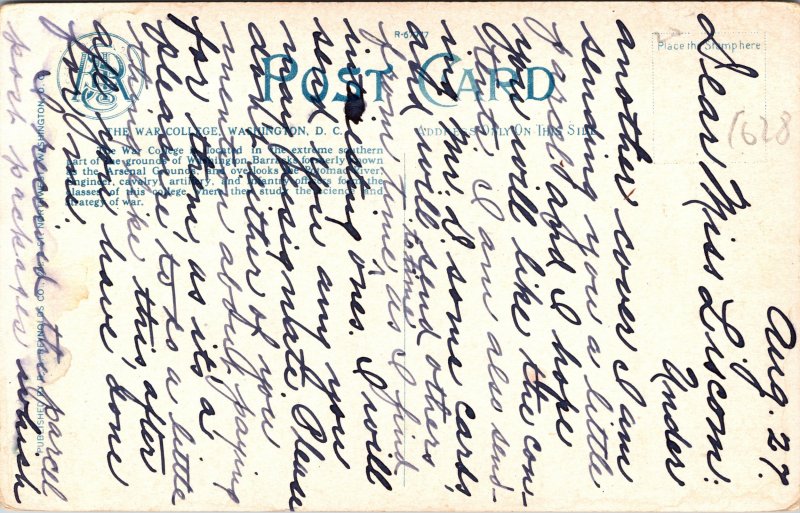 R-67977
POST CARD
Place the Stamp here
THE WAR COLLEGE, WASHINGTON, D. C.
ADDRESS ONLY ON THIS SIDE
The War College is located in the extreme southern
part of the grounds of Washington Barracks formerly known
as the Arsenal Grounds, and overlooks the Potomac River.
Engineer, cavalry, artillery, and infantry officers form the
classes of this college, where they study the science and
strategy of war.
1628
Aug. 27.
Dear Miss Liscom: Under
another cover I am
sending you a little
parcel and I hope
you will like the con-
tents. I am also send-
ing Miss D. some cards
and will send others
from time to time, as I find
interesting ones. I will
send you any you
may designate. Please
don't either of you
mention about paying
for them, as it's a
pleasure to do a little
thing like this, after
all you have done
for me.
send the parcel
post packages which
PUBLISHED BY REYNOLDS CO. WASHINGTON, D. C.